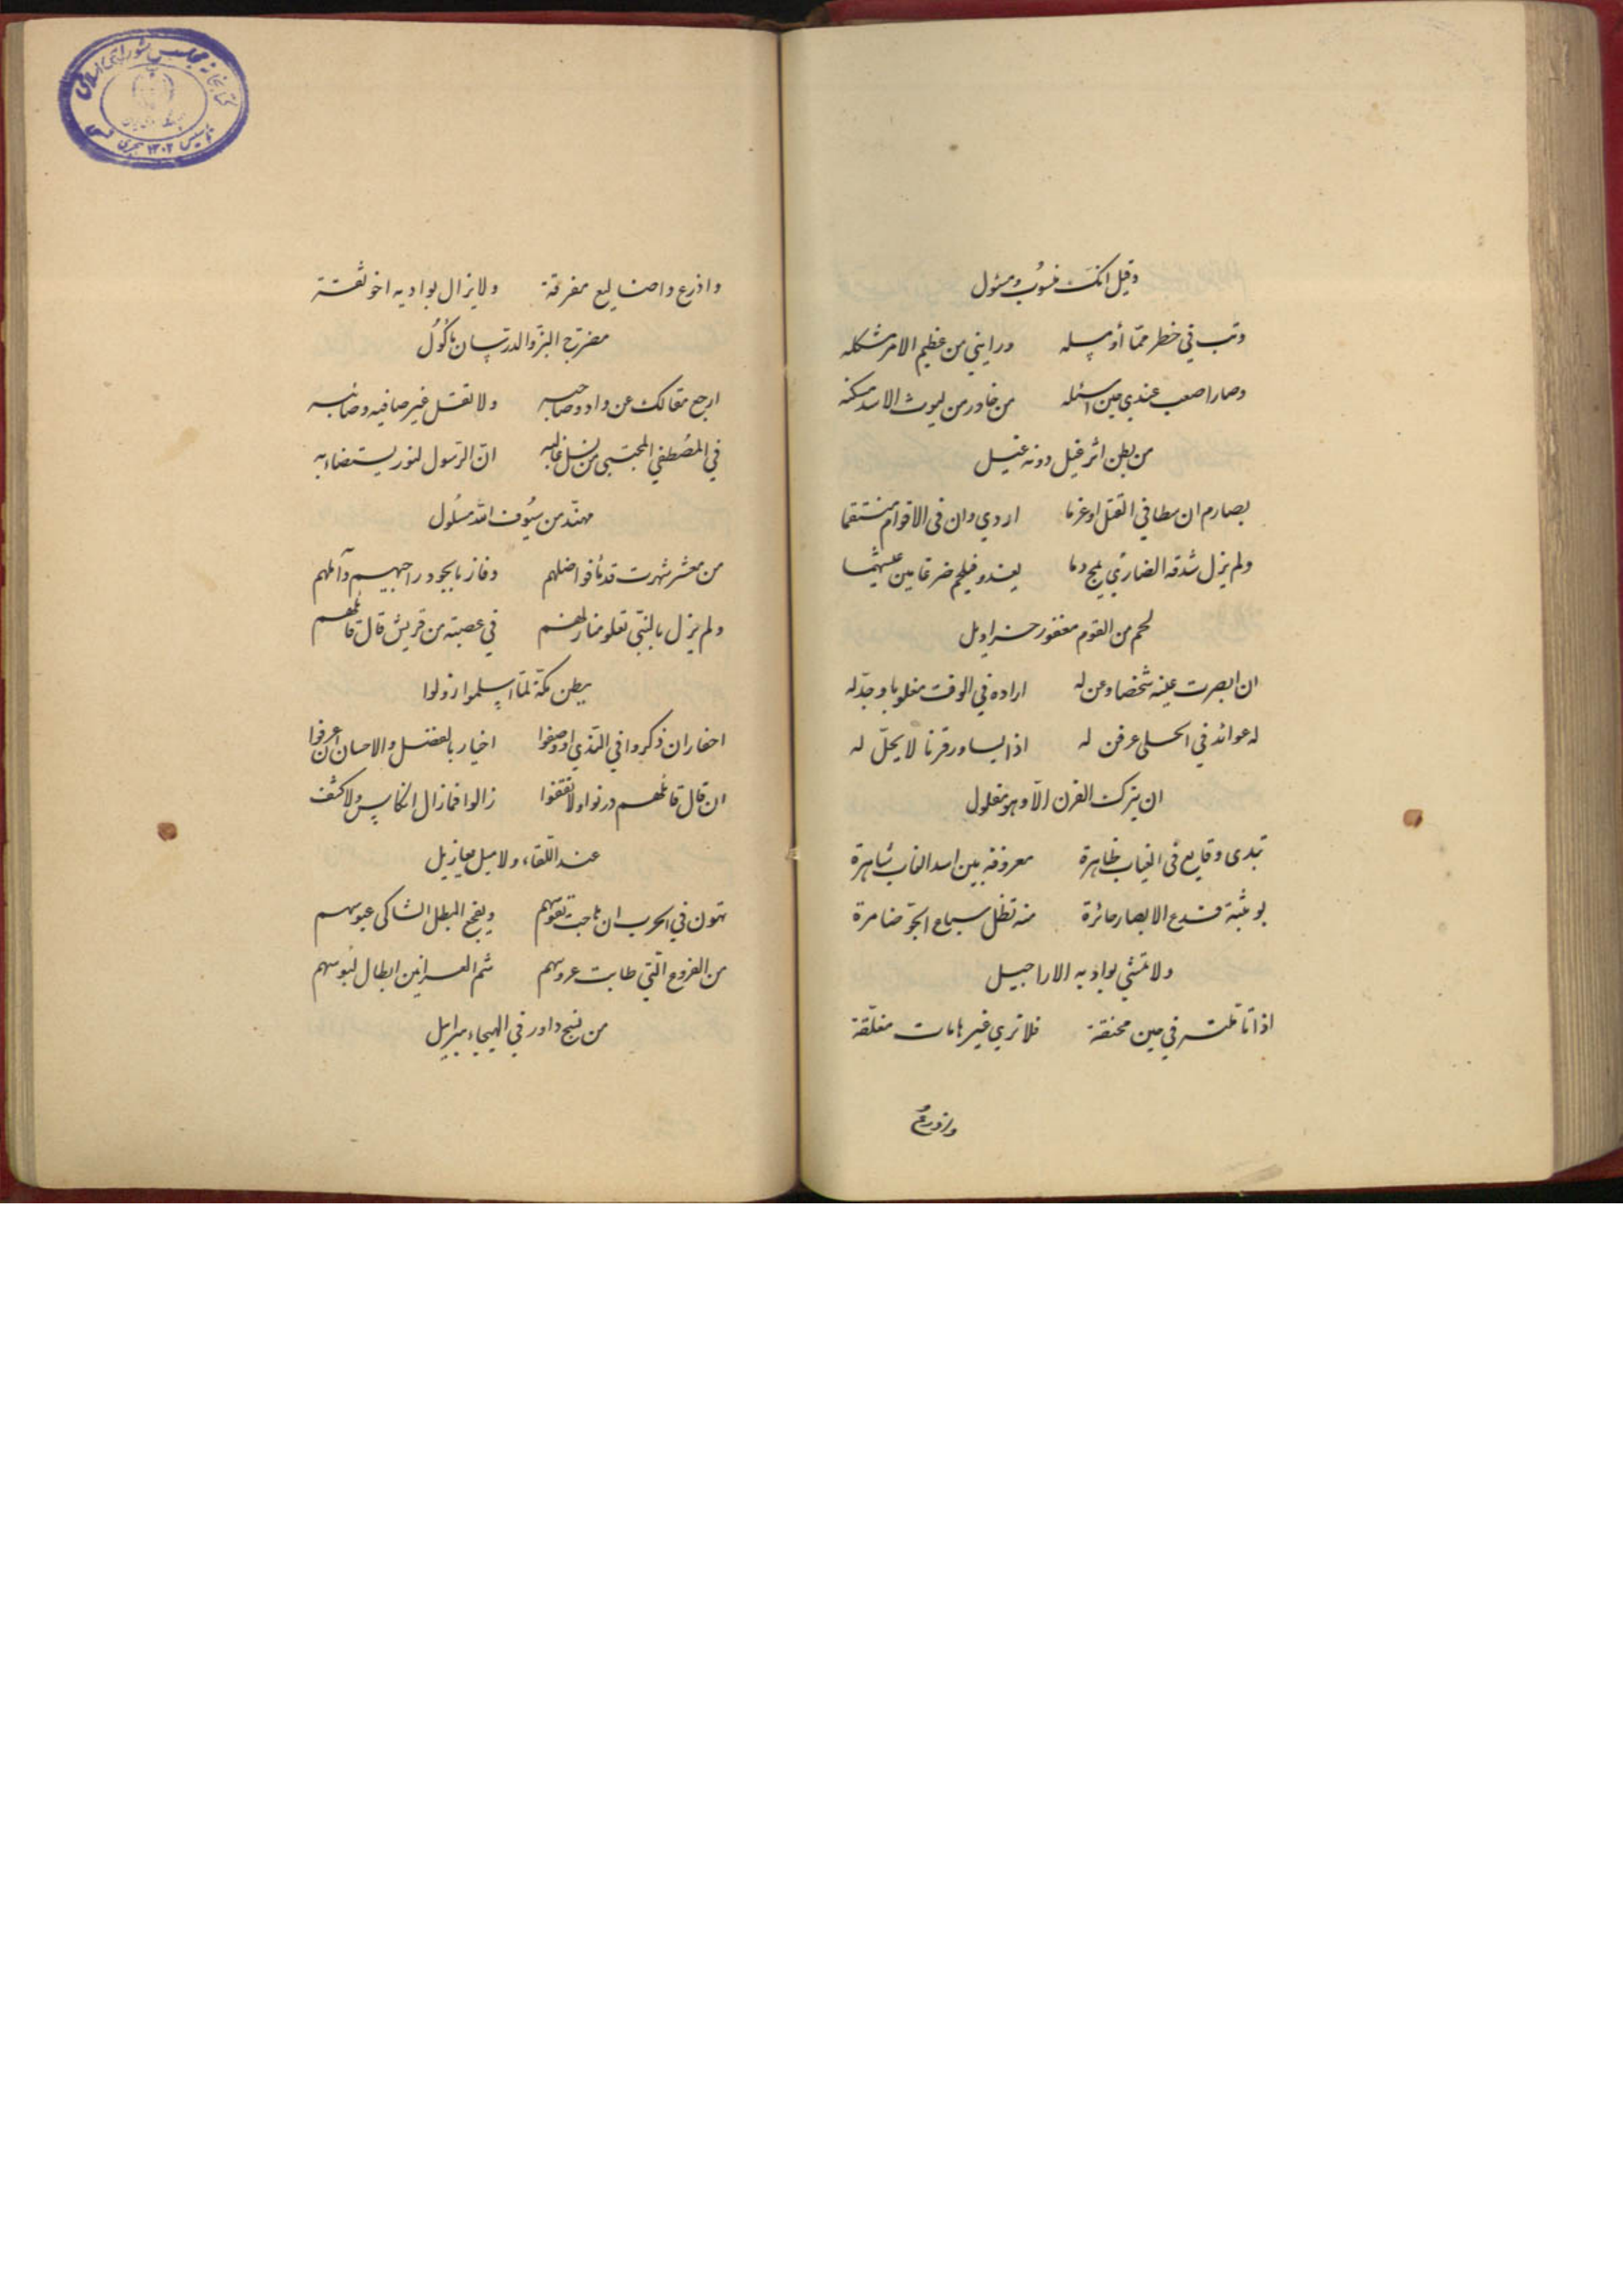 وقيل انك منسوب ومسئول
وتب في خطر مما أوسله ورابني من عظيم الامر مشكله
وصار اصعب عندي حين اسئله من خادر من ليوث الاسد مسكنه
من بطن اثر غيل دونه غيل
بصارم ان سطا في القتل او غرما اردي وان في الاقوام منتقما
ولم يزل شدقه الضاري يمج دما يغدو فيلحم ضرغامين عيشهما
لحم من القوم معفور خراديل
ان ابصرت عينه شخصا وعن له اراده في الوقت مغلوبا وجدله
له عوائد في الحسلى عرفن له اذا يساور قرنا لا يحل له
ان يترك القرن الا وهو مفلول
تبدى وقايع في الغياب ظاهرة معروفة بين اسد الغاب شاهرة
بوثبة تدع الابصار حائرة منه تظل سباع الجو ضامرة
ولا تمشي بواديه الاراجيل
اذا تأملت في حين محنقة فلا تري غير هامات مفلقة
واذرع
واذرع واضاليع مفرقة ولا يزال بواديه اخو ثقة
مضرج البز والدرسان مأكول
ارجع مقالك عن واد وصاحبه ولا تقل غير صافيه وصائبه
في المصطفي المجتبى من نسل غالبه ان الرسول لنور يستضاء به
مهند من سيوف الله مسلول
من معشر شهرت قدما فواضلهم وفاز بالجود راجيهم وآملهم
ولم يزل بالنبي تعلو منازلهم في عصبة من قريش قال قائلهم
ببطن مكة لما اسلموا زولوا
اخيار ان ذكروا في الندي او وصفوا اخيار بالفضل والاحسان ان عرفوا
ان قال قائلهم درنوا ولا تقفوا زالوا فما زال انكاس ولا كشف
عند اللقاء ولا ميل معازيل
تهون في الحرب ان هاجت نفوسهم ويفجع البطل الشاكى عبوسهم
من الفروع التي طابت غروسهم شم العرانين ابطال لبوسهم
من نسج داود في الهيجاء سرابيل